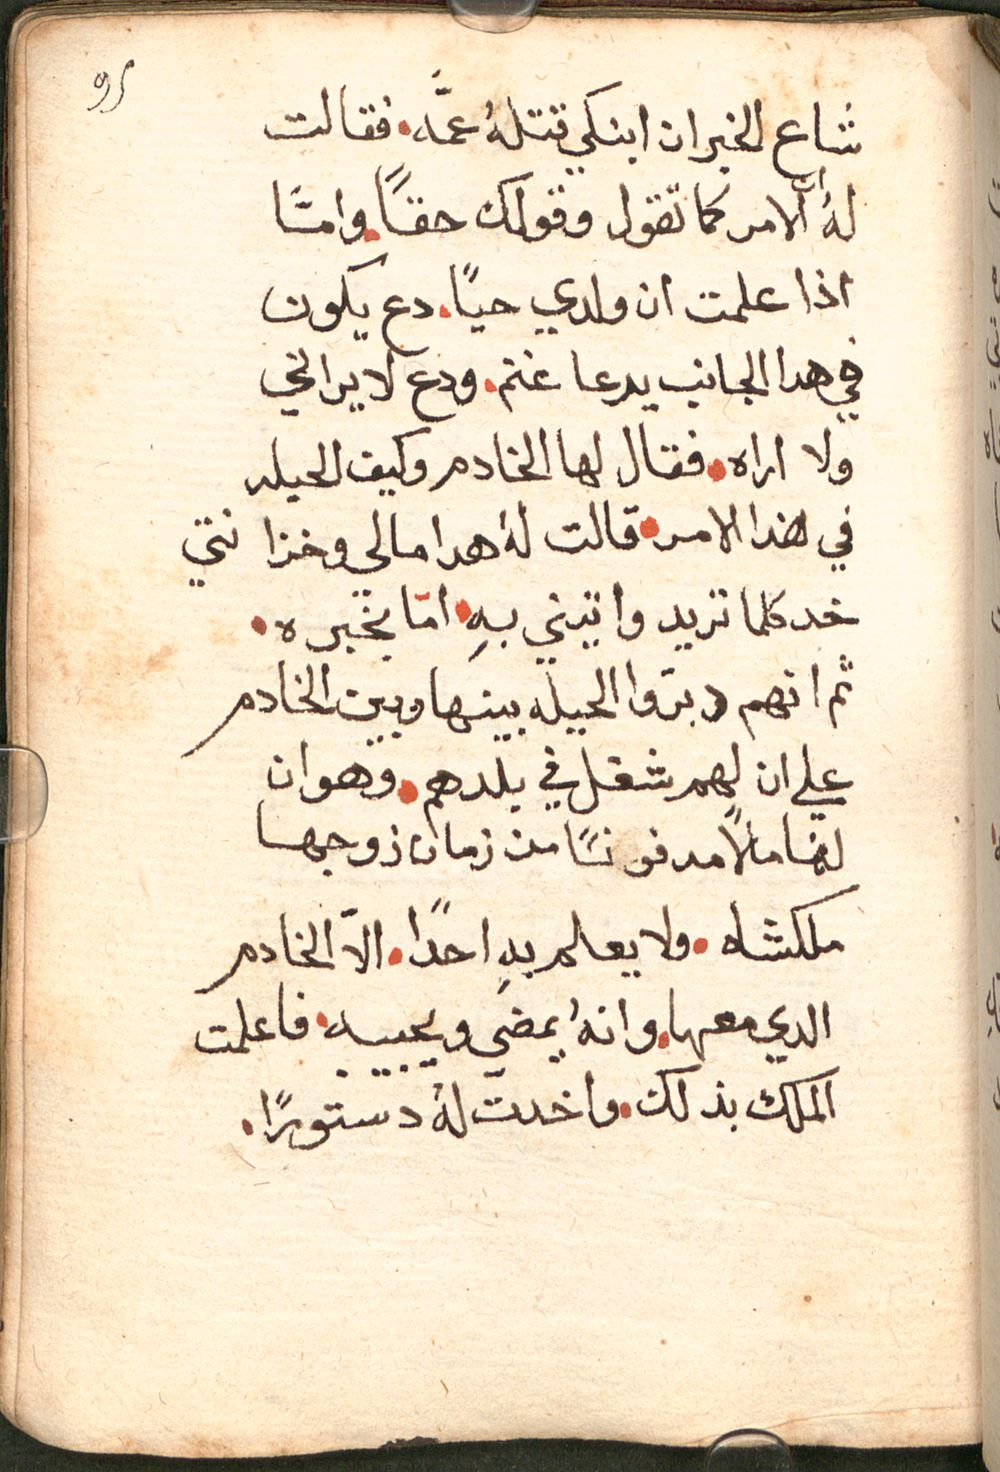 ٩٥
شاع الخبر ان ابنكي قتلهُ عمَّه. فقالت
لهُ انَّ الامر كما تقول وقولك حقاً. وامَّا
اذا علمت ان ولدي حياً. دع يكون
في هدا الجانب يرعا غنم. ودع لا يراني
ولا اراه. فقال لها الخادم وكيف الحيله
في هذا الامر. قالت لهُ هدا مالي وخزا نتي
خد كلما تريد واتيني بهِ. امّا بخبره.
ثم انهم دبرّوا الحيله بينها وبين الخادم
علي ان لهم شغل في بلدهم. وهو ان
لها مالاً مدفو ناً من زمان زوجها
ملكشاه. ولا يعلم بهِ احدًا. الاّ الخادم
الدي معها. وانهُ يمضي ويجيبه. فاعلمت
الملك بذلك. واخدت لهُ دستورًا.